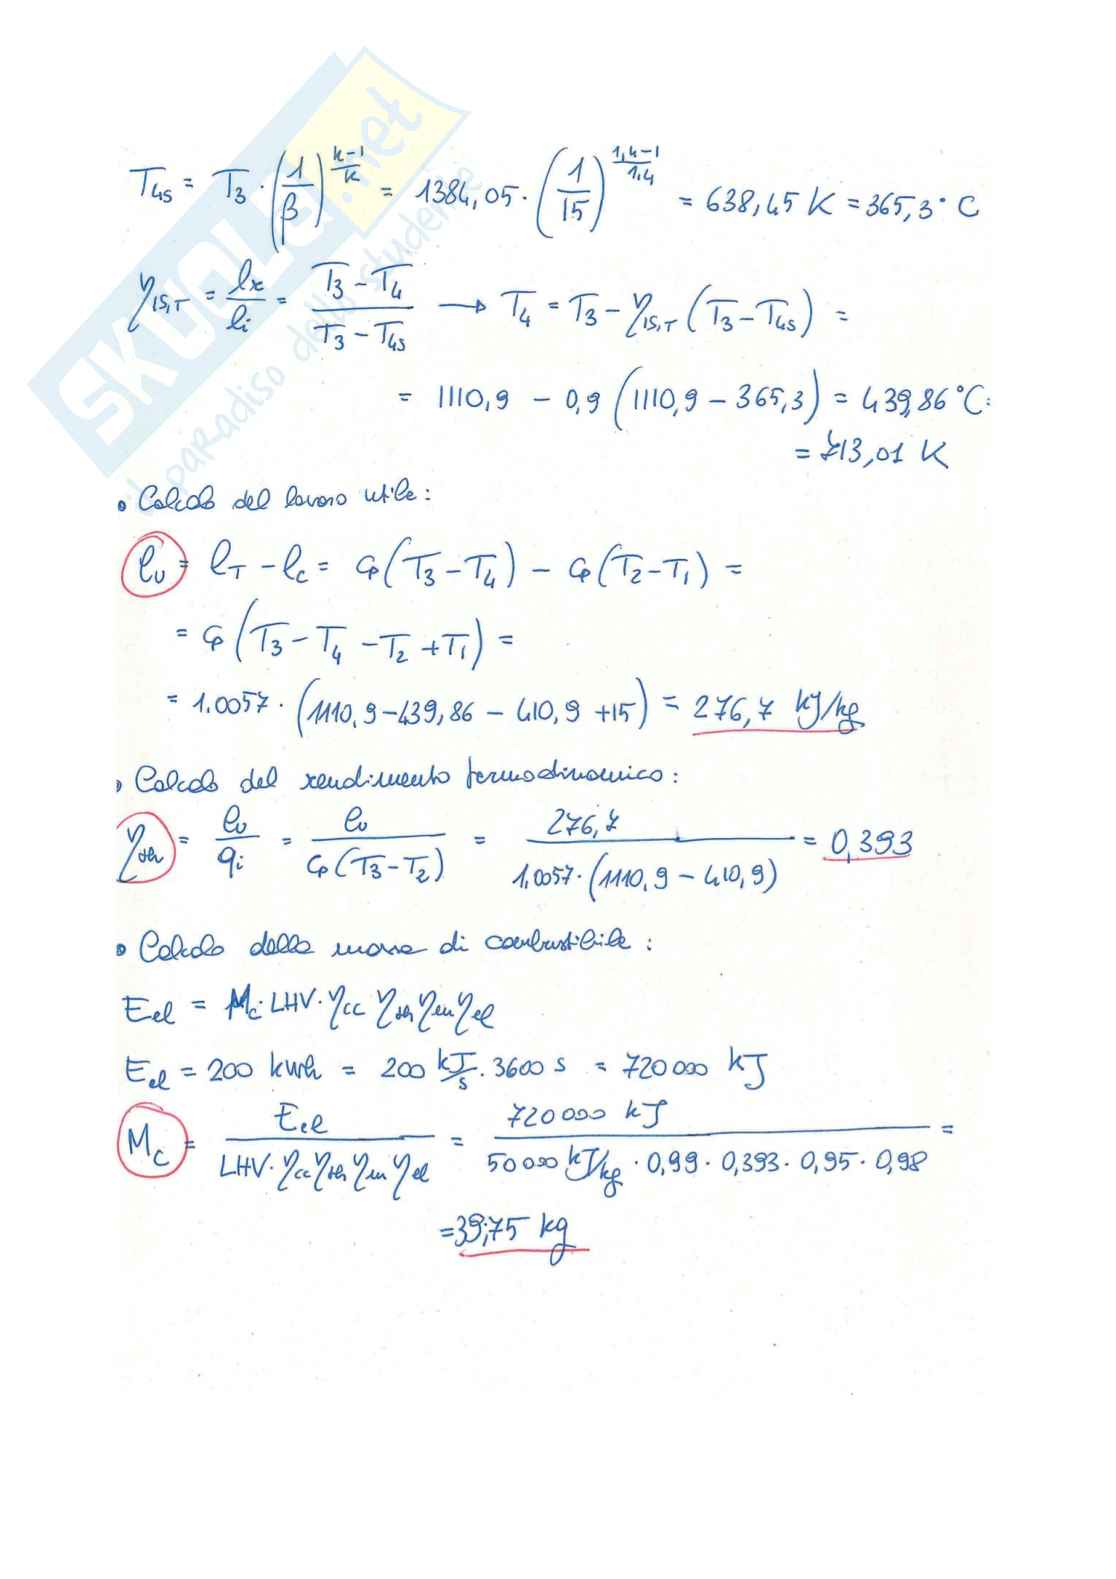 SKUOLA.net
il paradiso dello studente
T4s = T3 · (1/β)^((k-1)/k) = 1384,05 · (1/15)^((1,4-1)/1,4) = 638,45 K = 365,3 °C
ηis,T = lr/li = (T3 - T4)/(T3 - T4s) → T4 = T3 - ηis,T (T3 - T4s) =
= 1110,9 - 0,9 (1110,9 - 365,3) = 439,86 °C =
= 713,01 K
• Calcolo del lavoro utile:
lu = lT - lc = cp (T3 - T4) - cp (T2 - T1) =
= cp (T3 - T4 - T2 + T1) =
= 1.0057 · (1110,9 - 439,86 - 410,9 + 15) = 276,7 kJ/kg
• Calcolo del rendimento termodinamico:
ηth = lu/qi = lu/(cp (T3 - T2)) = 276,7/(1,0057 · (1110,9 - 410,9)) = 0,393
• Calcolo della massa di combustibile:
Eel = Mc · LHV · ηcc ηth ηm ηel
Eel = 200 kWh = 200 kJ/s · 3600 s = 720 000 kJ
Mc = Eel/(LHV · ηcc ηth ηm ηel) = 720 000 kJ/(50 000 kJ/kg · 0,99 · 0,393 · 0,95 · 0,98) =
= 39,75 kg